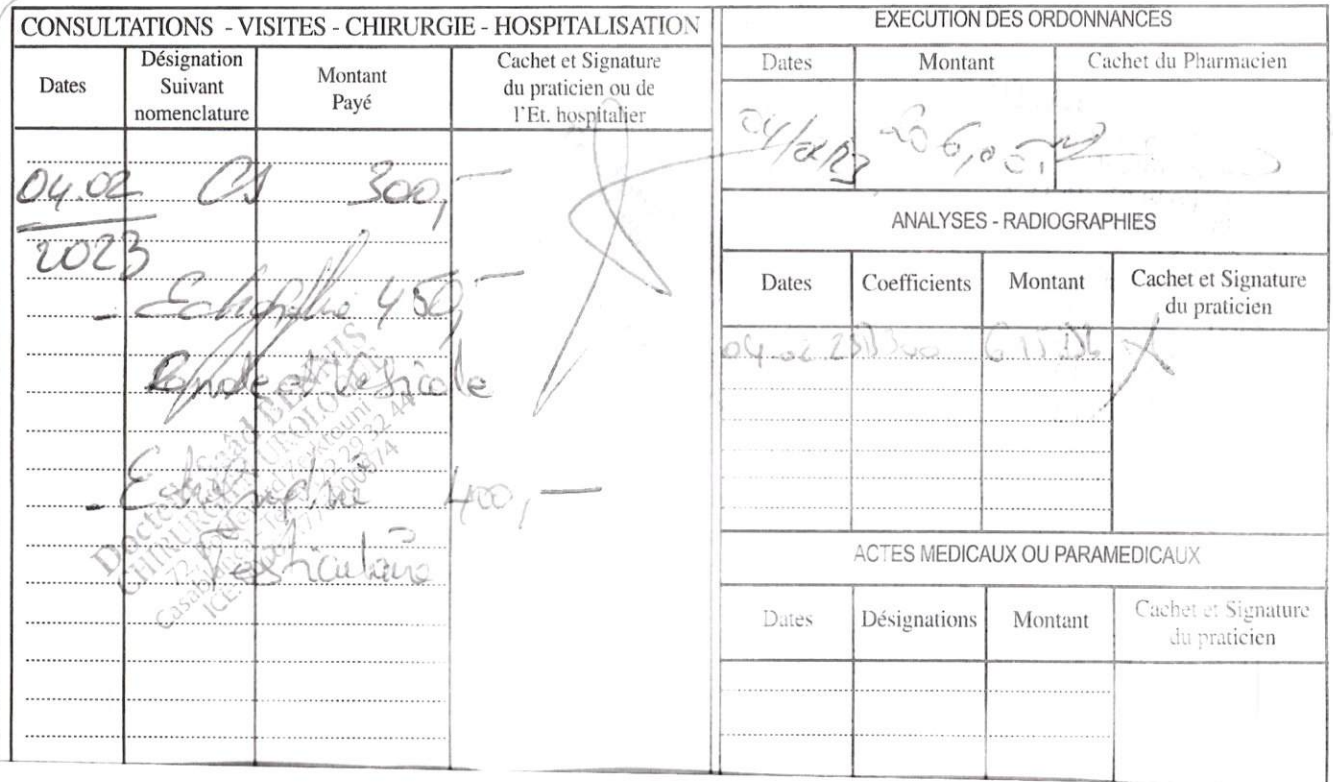 CONSULTATIONS - VISITES - CHIRURGIE - HOSPITALISATION
Dates
Désignation
Suivant
nomenclature
Montant
Payé
Cachet et Signature
du praticien ou de
l'Et. hospitalier
04.02 CS 300,-
2023
- Echographie 450,-
Rénale et Vésicale
- Echographie 400,-
Testiculaire
Docteur Saâd
CHIRURGIEN UROLOGUE
Casablanca
ICE:
EXECUTION DES ORDONNANCES
Dates
Montant
Cachet du Pharmacien
04/02/23
ANALYSES - RADIOGRAPHIES
Dates
Coefficients
Montant
Cachet et Signature
du praticien
04.02.23
ACTES MEDICAUX OU PARAMEDICAUX
Dates
Désignations
Montant
Cachet et Signature
du praticien